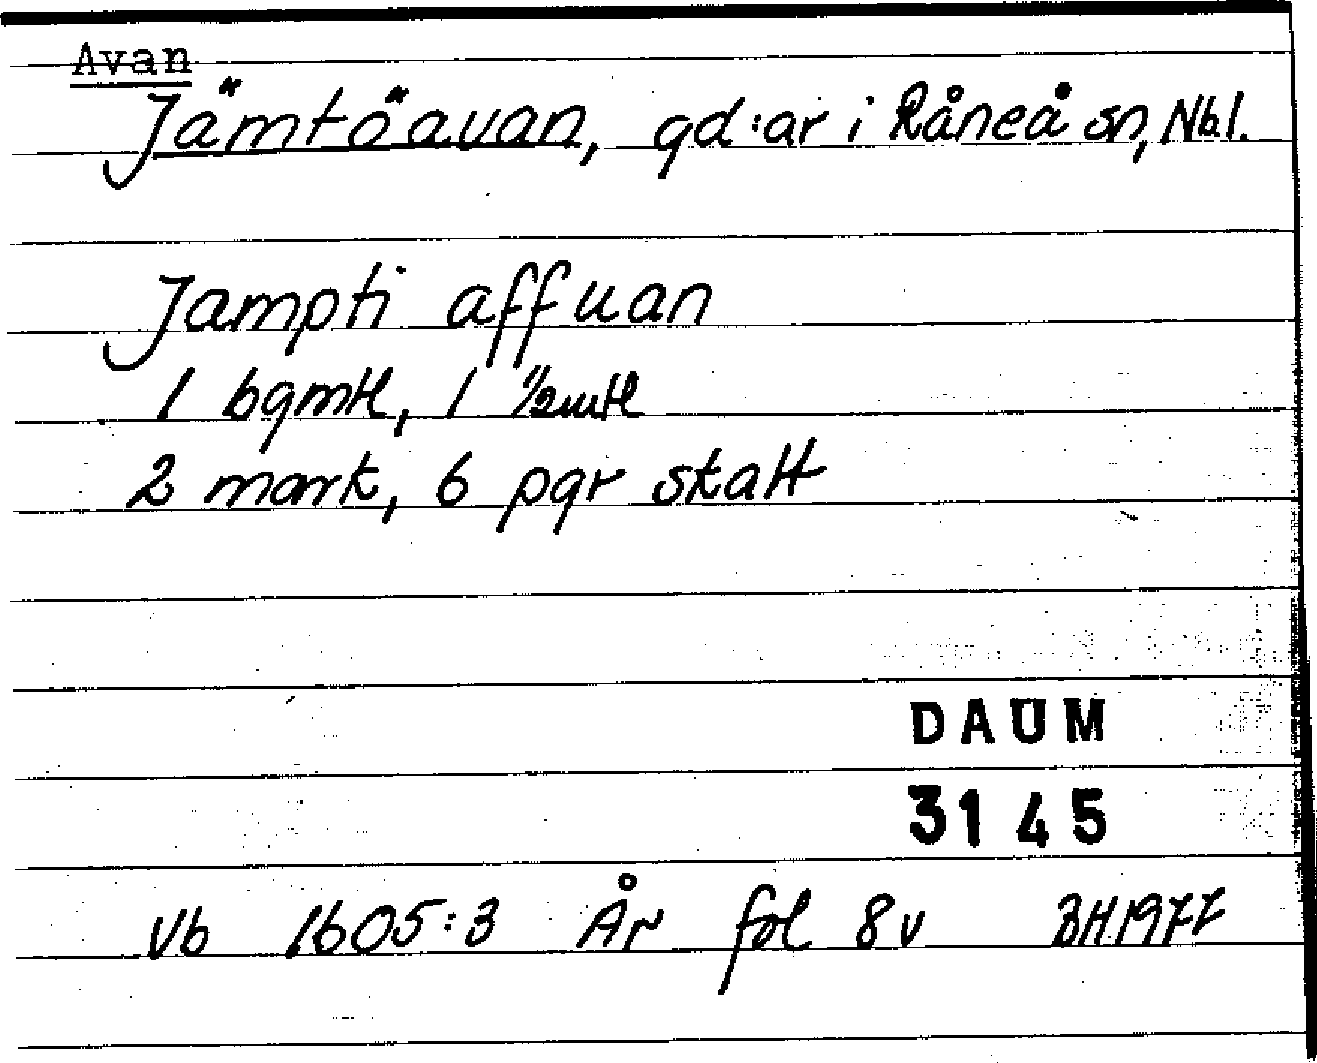 Avan
Jämtöavan, gd:ar i Råneå sn, Nbl.
Jampti affuan
1 bgmtl, 1 ½mtl
2 mark, 6 pgr skatt
DAUM
3145
Vb 1605:3 År fol 8v BH.1977